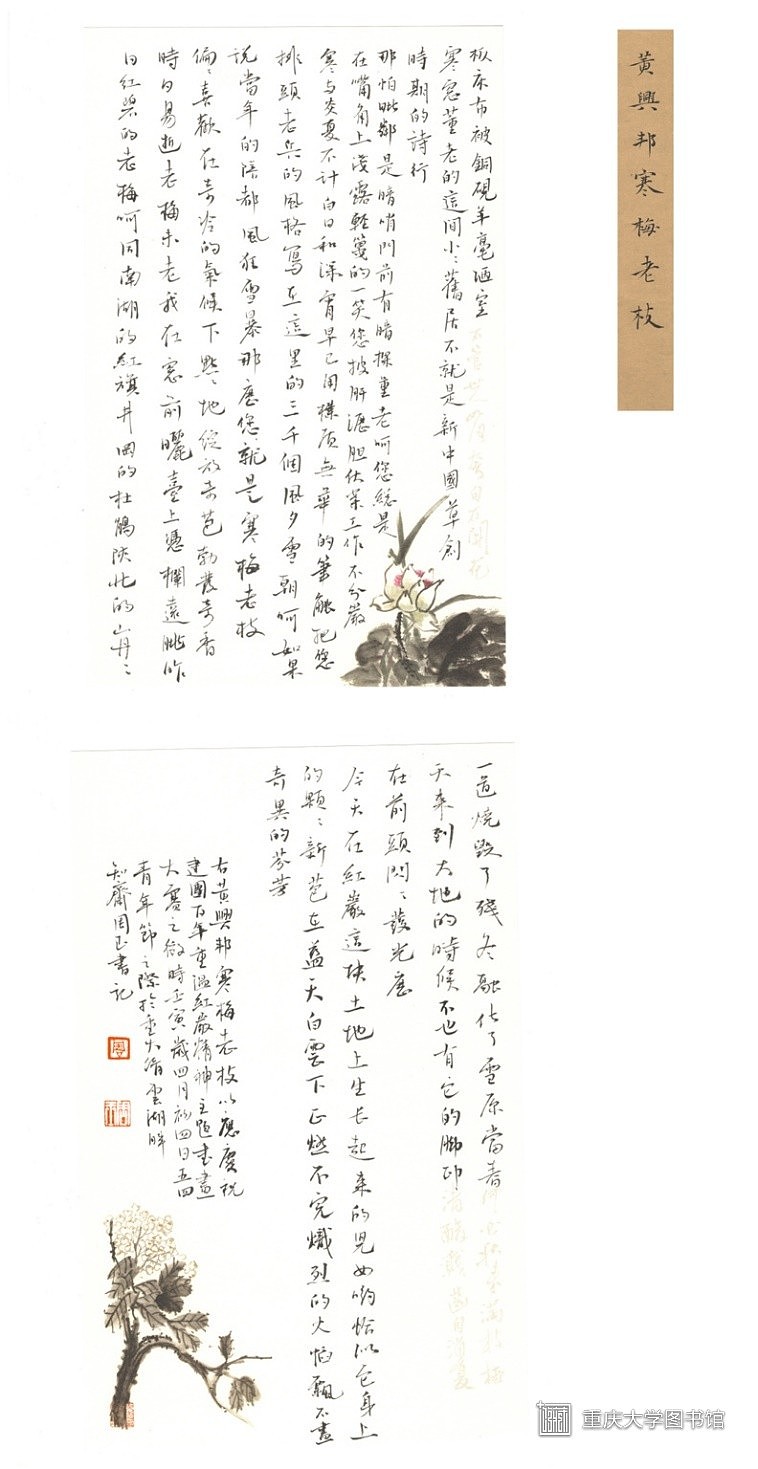 黃興邦寒梅老枝
板床布被銅硯羊毫陋室
寒窓董老的這間小〻舊居不就是新中國草創
時期的詩行
那怕毗鄰是暗哨門前有暗探董老呵您總是
在嘴角上淺露輕篾的一笑您披肝瀝胆伏案工作不分嚴
寒与炎夏不計白日和深宵早已用樸質無華的筆触把您
排頭老兵的風格寫在這里的三千個風夕雪朝呵如果
說當年的陪都風狂雪暴那麽您就是寒梅老枝
偏〻喜歡在奇冷的氣候下點〻地綻放奇苞勃發奇香
時日易逝老梅未老我在窓前曬臺上憑欄遠眺昨
日紅巖的老梅呵同南湖的紅旗井岡的杜鵑陝北的山丹〻
一道燒毀了殘冬融化了雪原當春
天來到大地的時候不也有它的脚印
在前頭閃〻發光麽
今天在紅巖這块土地上生长起来的兒女喲恰似它身上
的顆〻新苞在蓝天白雲下正燃不完熾烈的火焰飄不盡
奇異的芬芳
右黃興邦寒梅老枝以應慶祝
建團百年重温紅巖精神主題書畫
大賽之徵時壬寅歲四月初四日五四
青年節之際於重大缙雲湖畔
知齋周正書記
重庆大学图书馆